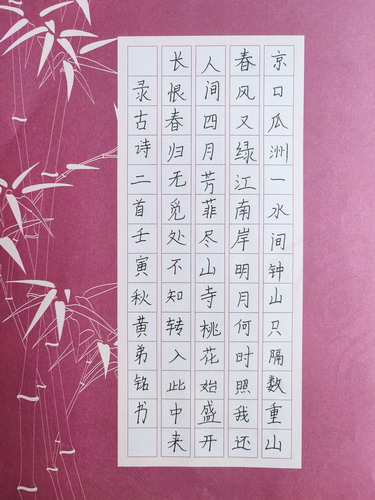 京口瓜洲一水间钟山只隔数重山
春风又绿江南岸明月何时照我还
人间四月芳菲尽山寺桃花始盛开
长恨春归无觅处不知转入此中来
录古诗二首壬寅秋黄弟铭书